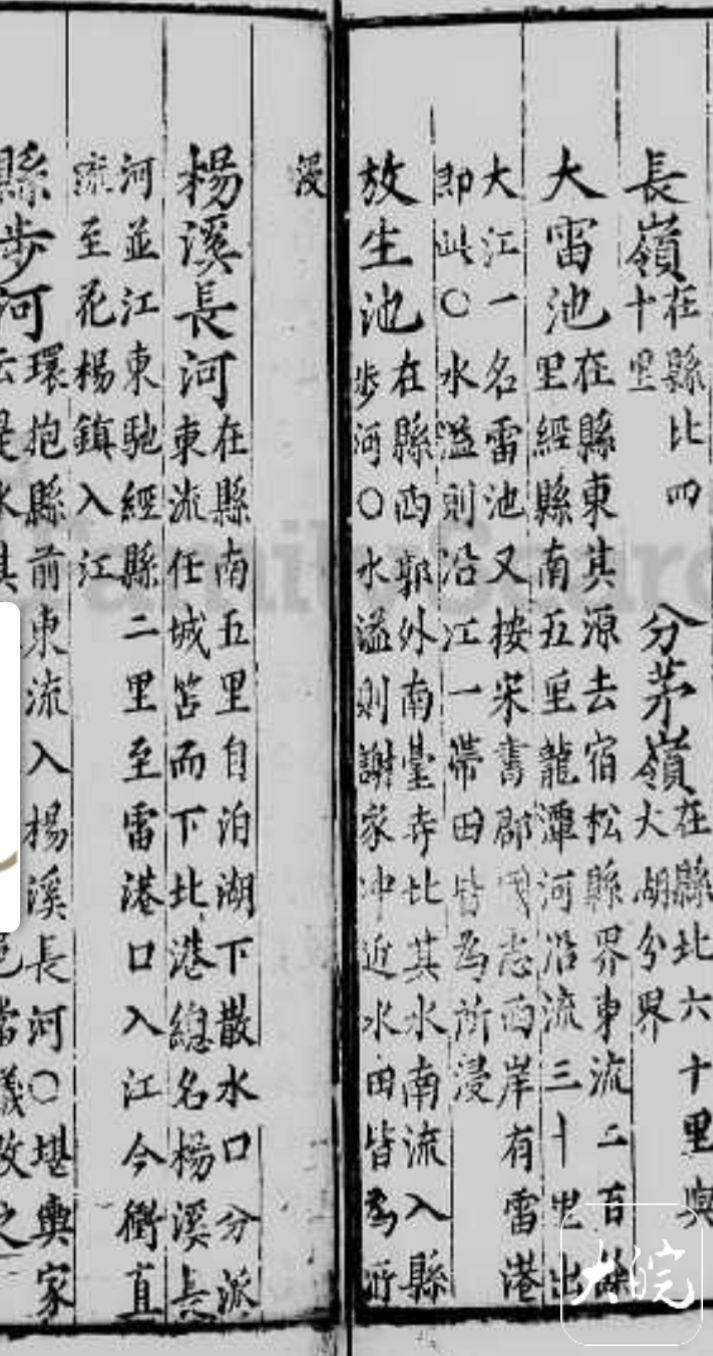 長嶺在縣北四
十里
分茅嶺在縣北六十里與
大湖分界
大雷池在縣東其源去宿松縣界東流二百餘
里經縣南五里龍潭河沿流三十里出
大江一名雷池又按宋書郡國志西岸有雷港
即此〇水溢則沿江一帶田皆為所浸
放生池在縣西郭外南臺寺北其水南流入縣
步河〇水溢則謝家沖近水田皆為所
浸
楊溪長河在縣南五里自泊湖下散水口分派
東流任城筥而下北港總名楊溪長
河並江東馳經縣二里至雷港口入江今衝直
流至花楊鎮入江
縣步河環抱縣前東流入楊溪長河〇堪輿家
云是水其
當議改之
大皖